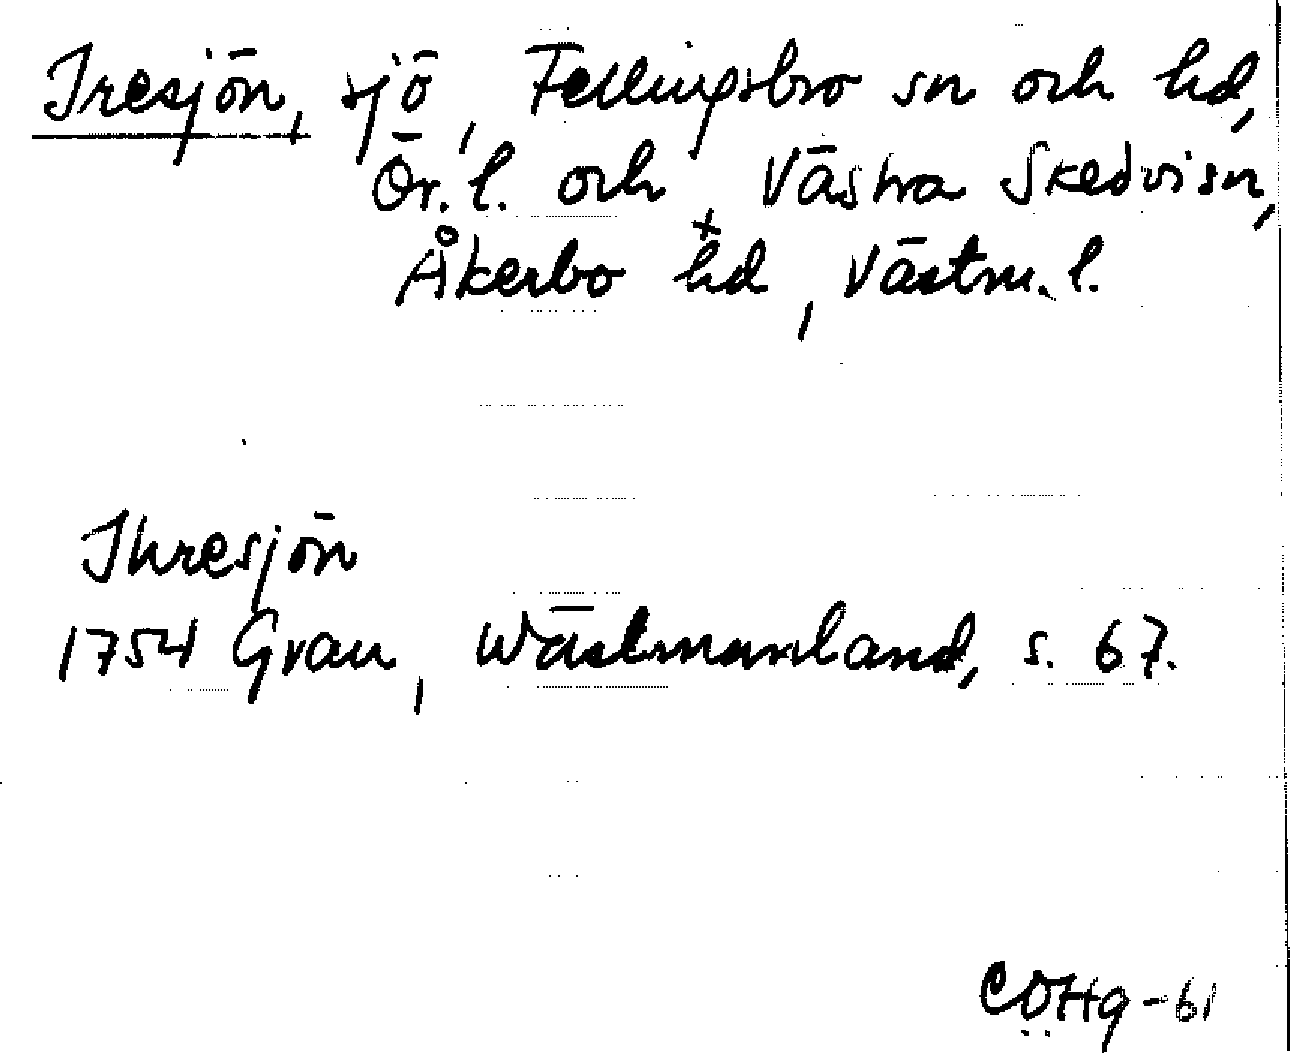 Iresjön, sjö, Fellingsbro sn och hd,
Ör. l. och Västra Skedvi sn,
Åkerbo hd, Västm. l.
Ihresjön
1754 Grau, Wästmanland, s. 67.
CÖHg-61